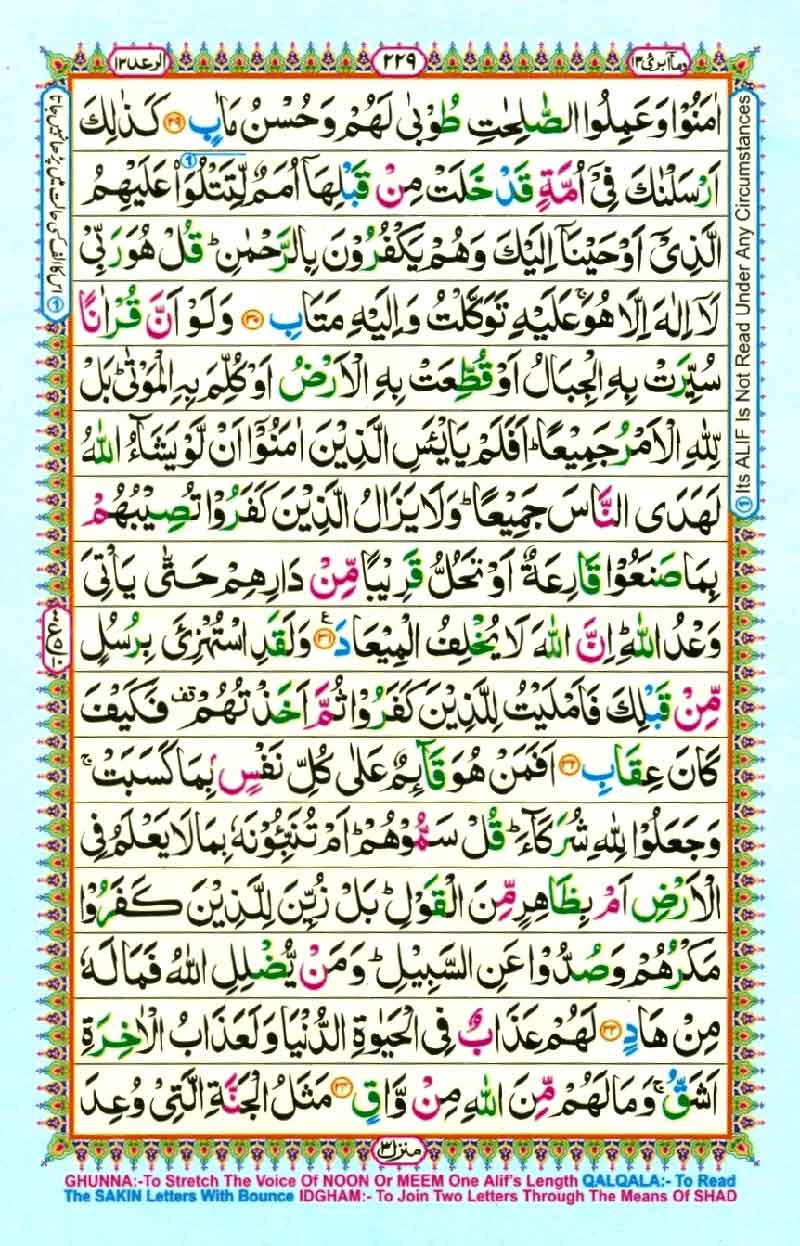 وماۤ ابرئ ١٣
٢٢٩
الرعد ١٣
اٰمَنُوْا وَعَمِلُوا الصّٰلِحٰتِ طُوْبٰى لَهُمْ وَحُسْنُ مَاٰبٍ ﴿٢٩﴾ كَذٰلِكَ
اَرْسَلْنٰكَ فِيْۤ اُمَّةٍ قَدْ خَلَتْ مِنْ قَبْلِهَاۤ اُمَمٌ لِّتَتْلُوَا۟ عَلَيْهِمُ
الَّذِيْۤ اَوْحَيْنَاۤ اِلَيْكَ وَهُمْ يَكْفُرُوْنَ بِالرَّحْمٰنِ ؕ قُلْ هُوَ رَبِّيْ
لَاۤ اِلٰهَ اِلَّا هُوَ ۚ عَلَيْهِ تَوَكَّلْتُ وَاِلَيْهِ مَتَابِ ﴿٣٠﴾ وَلَوْ اَنَّ قُرْاٰنًا
سُيِّرَتْ بِهِ الْجِبَالُ اَوْ قُطِّعَتْ بِهِ الْاَرْضُ اَوْ كُلِّمَ بِهِ الْمَوْتٰى ؕ بَلْ
لِّلّٰهِ الْاَمْرُ جَمِيْعًا ؕ اَفَلَمْ يَايْـَٔسِ الَّذِيْنَ اٰمَنُوْۤا اَنْ لَّوْ يَشَآءُ اللّٰهُ
لَهَدَى النَّاسَ جَمِيْعًا ؕ وَلَا يَزَالُ الَّذِيْنَ كَفَرُوْا تُصِيْبُهُمْ
بِمَا صَنَعُوْا قَارِعَةٌ اَوْ تَحُلُّ قَرِيْبًا مِّنْ دَارِهِمْ حَتّٰى يَاْتِيَ
وَعْدُ اللّٰهِ ؕ اِنَّ اللّٰهَ لَا يُخْلِفُ الْمِيْعَادَ ﴿٣١﴾ ع وَلَقَدِ اسْتُهْزِئَ بِرُسُلٍ
مِّنْ قَبْلِكَ فَاَمْلَيْتُ لِلَّذِيْنَ كَفَرُوْا ثُمَّ اَخَذْتُهُمْ قف فَكَيْفَ
كَانَ عِقَابِ ﴿٣٢﴾ اَفَمَنْ هُوَ قَآئِمٌ عَلٰى كُلِّ نَفْسٍۭ بِمَا كَسَبَتْ ۚ
وَجَعَلُوْا لِلّٰهِ شُرَكَآءَ ؕ قُلْ سَمُّوْهُمْ ؕ اَمْ تُنَبِّـُٔوْنَهٗ بِمَا لَا يَعْلَمُ فِى
الْاَرْضِ اَمْ بِظَاهِرٍ مِّنَ الْقَوْلِ ؕ بَلْ زُيِّنَ لِلَّذِيْنَ كَفَرُوْا
مَكْرُهُمْ وَصُدُّوْا عَنِ السَّبِيْلِ ؕ وَمَنْ يُّضْلِلِ اللّٰهُ فَمَا لَهٗ
مِنْ هَادٍ ﴿٣٣﴾ لَهُمْ عَذَابٌ فِى الْحَيٰوةِ الدُّنْيَا وَلَعَذَابُ الْاٰخِرَةِ
اَشَقُّ ۚ وَمَا لَهُمْ مِّنَ اللّٰهِ مِنْ وَّاقٍ ﴿٣٤﴾ مَثَلُ الْجَنَّةِ الَّتِيْ وُعِدَ
① Its ALIF Is Not Read Under Any Circumstances
منزل ٣
GHUNNA:-To Stretch The Voice Of NOON Or MEEM One Alif's Length QALQALA:- To Read
The SAKIN Letters With Bounce IDGHAM:- To Join Two Letters Through The Means Of SHAD